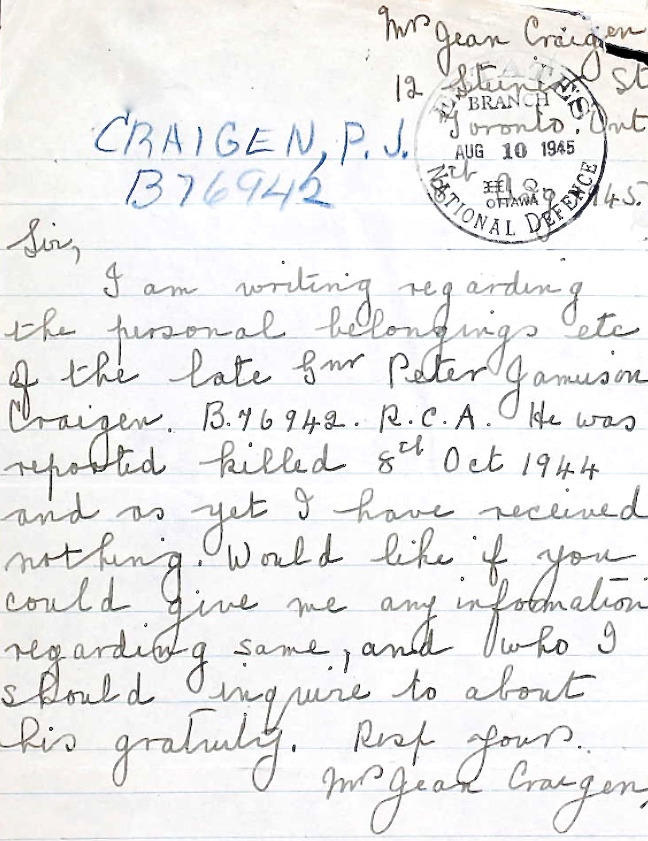 Mrs Jean Craigen
12 St
Toronto. Ont
Aug. 1945.
ESTATES
BRANCH
AUG 10 1945
H Q
OTTAWA
NATIONAL DEFENCE
CRAIGEN, P. J.
B76942
Sir,
I am writing regarding
the personal belongings etc
of the late Gnr Peter Jamieson
Craigen. B.76942. R.C.A. He was
reported killed 8th Oct 1944
and as yet I have received
nothing. Would like if you
could give me any information
regarding same, and who I
should inquire to about
his gratuity. Resp yours.
Mrs Jean Craigen,